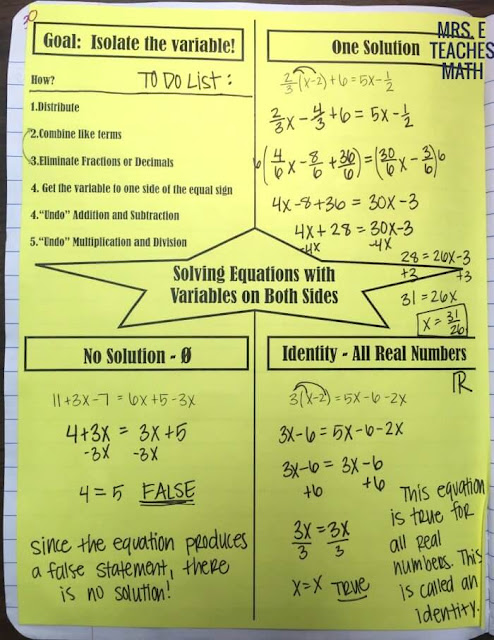 30
Goal: Isolate the variable!
How? TO DO LIST:
1.Distribute
2.Combine like terms
3.Eliminate Fractions or Decimals
4. Get the variable to one side of the equal sign
4."Undo" Addition and Subtraction
5."Undo" Multiplication and Division
One Solution
MRS. E
TEACHES
MATH
2/3(x-2)+6=5x-1/2
2/3x-4/3+6=5x-1/2
6(4/6x-8/6+36/6)=(30/6x-3/6)6
4x-8+36=30x-3
4x+28=30x-3
-4x -4x
28=26x-3
+3 +3
31=26x
x=31/26
Solving Equations with
Variables on Both Sides
No Solution - Ø
11+3x-7=6x+5-3x
4+3x=3x+5
-3x -3x
4=5 FALSE
since the equation produces
a false statement, there
is no solution!
Identity - All Real Numbers
ℝ
3(x-2)=5x-6-2x
3x-6=5x-6-2x
3x-6=3x-6
+6 +6
3x/3=3x/3
x=x TRUE
This equation
is true for
all real
numbers. This
is called an
identity.